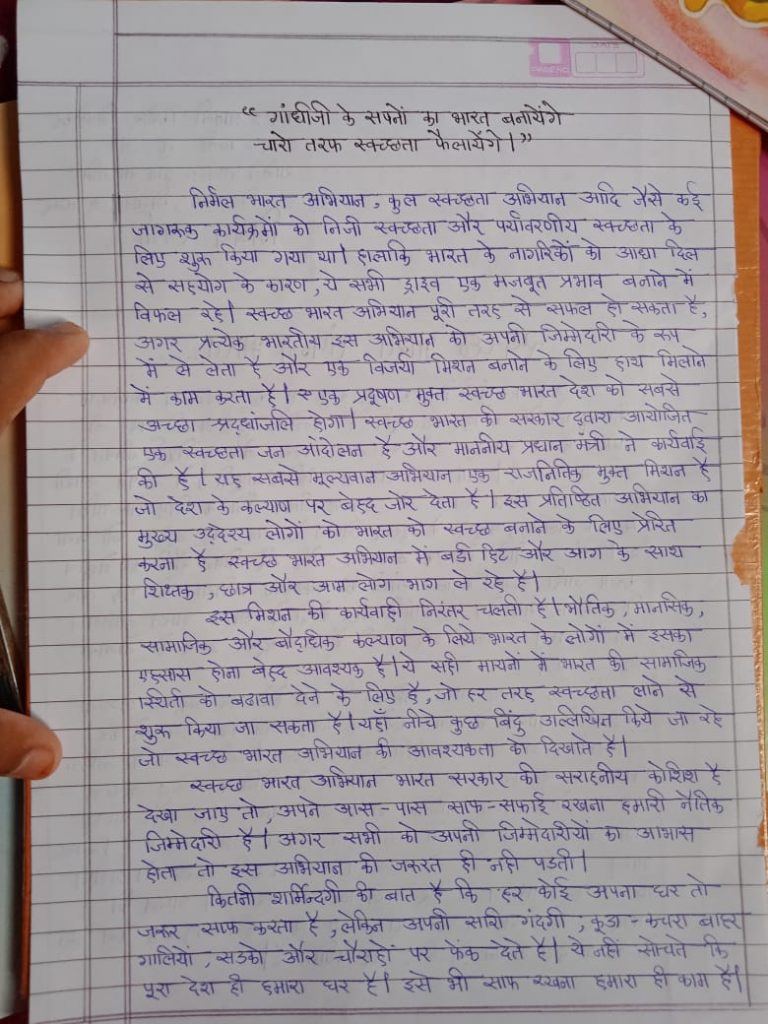 “ गांधीजी के सपनों का भारत बनायेंगे
चारो तरफ स्वच्छता फैलायेंगे।”
निर्मल भारत अभियान, कुल स्वच्छता अभियान आदि जैसे कई
जागरुक कार्यक्रमों को निजी स्वच्छता और पर्यावरणीय स्वच्छता के
लिए शुरू किया गया था। हालाकि भारत के नागरिकों को आधा दिल
से सहयोग के कारण, ये सभी ड्राइव एक मजबूत प्रभाव बनाने में
विफल रहे। स्वच्छ भारत अभियान पूरी तरह से सफल हो सकता है,
अगर प्रत्येक भारतीय इस अभियान को अपनी जिम्मेदारि के रूप
में ले लेता है और एक विजयी मिशन बनाने के लिए हाथ मिलाने
में काम करता है। एक प्रदूषण मुक्त स्वच्छ भारत देश को सबसे
अच्छा श्रद्धांजलि होगा। स्वच्छ भारत की सरकार द्वारा आयोजित
एक स्वच्छता जन आंदोलन है और माननीय प्रधान मंत्री ने कार्यवाई
की है। यह सबसे मूल्यवान अभियान एक राजनितिक मुक्त मिशन है
जो देश के कल्याण पर बेहद जोर देता है। इस प्रतिष्ठित अभियान का
मुख्य उद्देश्य लोगों को भारत को स्वच्छ बनाने के लिए प्रेरित
करना है स्वच्छ भारत अभियान में बडी हिट और आग के साथ
शिक्षक, छात्र और आम लोग भाग ले रहे है।
इस मिशन की कार्यवाही निरंतर चलती है। भौतिक, मानसिक,
सामाजिक और बौद्धिक कल्याण के लिये भारत के लोगों में इसका
एहसास होना बेहद आवश्यक है। ये सही मायनों में भारत की सामाजिक
स्थिती को बढावा देने के लिए है, जो हर तरह स्वच्छता लाने से
शुरू किया जा सकता है। यहाँ नीचे कुछ बिंदु उल्लिखित किये जा रहे
जो स्वच्छ भारत अभियान की आवश्यकता को दिखाते है।
स्वच्छ भारत अभियान भारत सरकार की सराहनीय कोशिश है
देखा जाए तो, अपने आस-पास साफ-सफाई रखना हमारी नैतिक
जिम्मेदारी है। अगर सभी को अपनी जिम्मेदारीयों का आभास
होता तो इस अभियान की जरूरत ही नही पडती।
कितनी शर्मिन्दगी की बात है कि हर कोई अपना घर तो
जरूर साफ करता है, लेकिन अपनी सारि गंदगी, कूडा-कचरा बाहर
गालियों, सडको और चौराहों पर फेंक देते है। ये नहीं सोचते कि
पूरा देश ही हमारा घर है। इसे भी साफ रखना हमारा ही काम है।